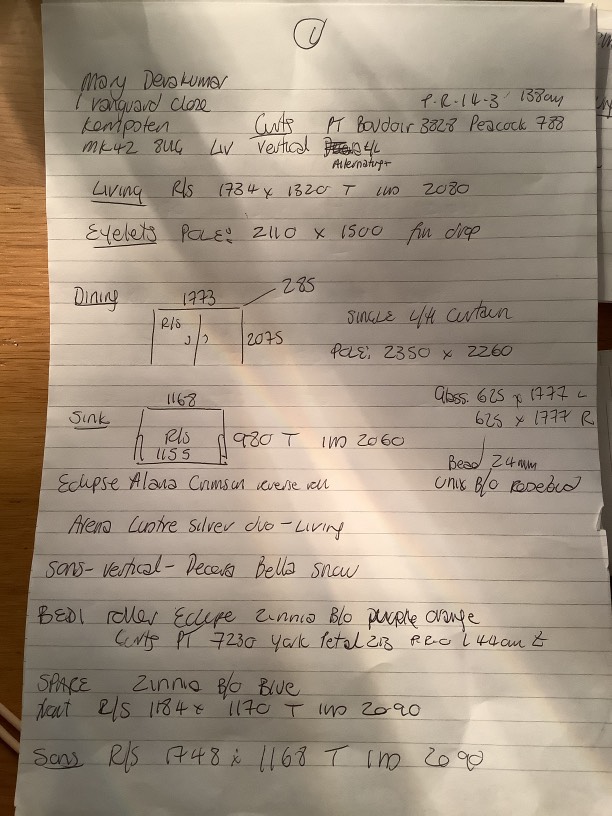 1
Mary Devakumar
1 Vanguard Close
P.R-14-3 138cm
Kempston Curts PT Boudoir 3828 Peacock 788
MK42 8UG Liv Vertical 4/L
Alternating
Living R/s 1734 x 1320 T IMO 2080
Eyelets POLE: 2110 x 1500 fin drop
Dining 1773 285
R/s 2075
SINGLE L/H Curtain
POLE: 2350 x 2260
Sink 1168
R/s 980 T IMO 2060
1155
Glass. 625 x 1777 L
625 x 1777 R
Bead 24mm
Unix B/O Rosebud
Eclipse Alana Crimson reverse roll
Arena Lustre silver duo - Living
Sons - vertical - Decora Bella snow
BED1 roller Eclipse Zinnia B/o purple orange
Curts PT 7230 York Petal 213
SPARE Zinnia B/O Blue
front R/S 1184 x 1170 T IMO 2090
Sons R/S 1748 x 1168 T IMO 2090